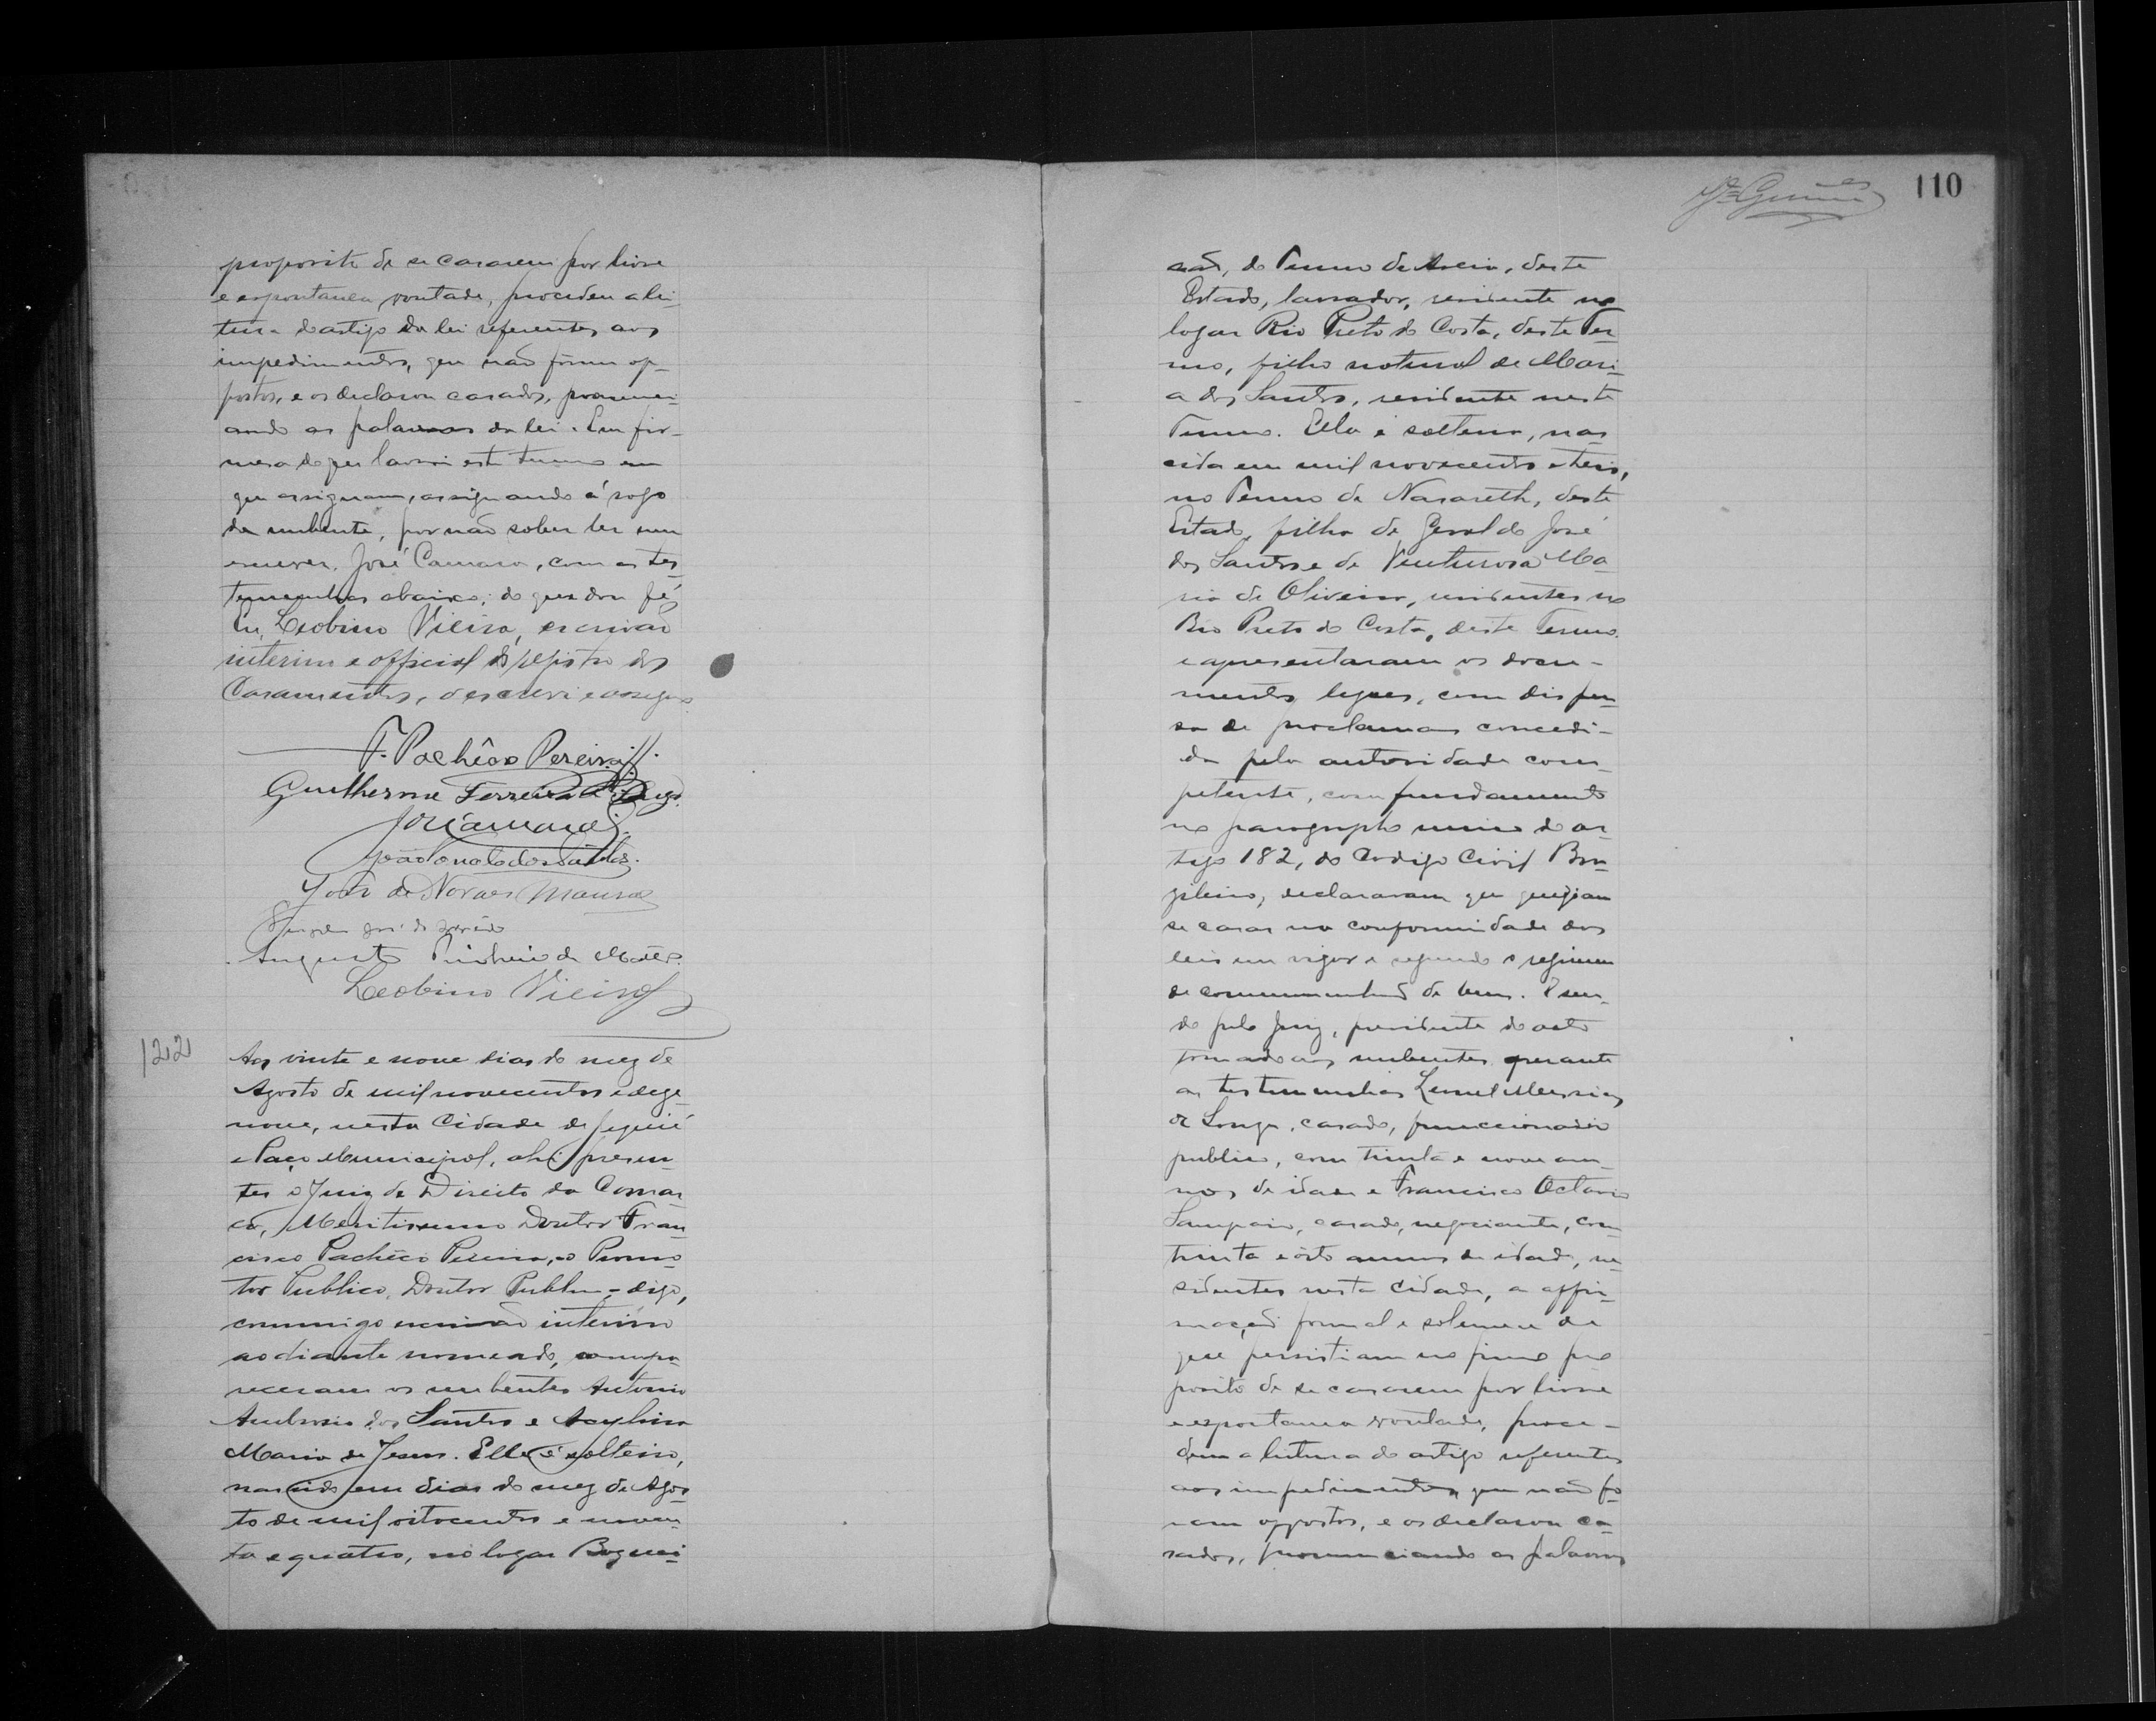 proposito de se casarem por livre
e espontanea vontade, procedeu a lei-
tura do artigo da lei referentes aos
impedimentos, que não fôram op-
postos, e os declarou casados, pronunci-
ando as palavras da lei. Em fir-
mesa do que lavrei este termo em
que assignam, assignando á rogo
da nubente, por não saber ler nem
escrever, José Camara, com as tes-
temunhas abaixo; do que dou fé,
Eu, Leobino Vieira, escrivão
interino e official do registro dos
Casamentos, o escrevi e assigno.
F. Pachêco Pereira
Guilherme Ferreira
J Camara
João dos Santos.
João de Novaes Moura
José de
Augusto Pinheiro de Mattos.
Leobino Vieira
122
Aos vinte e nove dias do mez de
Agosto de mil novecentos e deze-
nove, nesta Cidade de Jequié
e Paço Municipal, ahi presen-
tes o Juiz de Direito da Comar-
ca, Meritissimo Doutor Fran-
cisco Pachêco Pereira, o Promo-
tor Publico, Doutor Publ - digo,
commigo escrivão interino
ao diante nomeado, compa-
receram os nubentes Antonio
Ambrosio dos Santos e Acylina
Maria de Jesus. Elle é solteiro,
nascido em dias do mez de Agos-
to de mil oitocentos e noven-
ta e quatro, no logar Boquei-
110
rão, do Termo de Areia, deste
Estado, lavrador, residente no
logar Rio Preto do Costa, deste Ter-
mo, filho natural de Mari-
a dos Santos, residente neste
Termo. Ella é solteira, nas-
cida em mil novecentos e tres,
no Termo de Nazareth, deste
Estado, filha de Geraldo José
dos Santos e de Venturosa Ma-
ria de Oliveira, residentes no
Rio Preto do Costa, deste Termo
e apresentaram os docu-
mentos legaes, com dispen-
sa de proclamas concedi-
da pela autoridade com-
petente, com fundamento
no paragrapho unico do ar-
tigo 182, do Codigo Civil Bra-
zileiro, declararam que queriam
se casar na conformidade das
leis em vigor e segundo o regimen
de communhão de bens. E sen-
do pelo Juiz, presidente do acto
tomado aos nubentes perante
as testemunhas Leonel Messias
de Souza, casado, funccionario
publico, com trinta e nove an-
nos de idade e Francisco Octavio
Sampaio, casado, negociante, com
trinta e oito annos de idade, re-
sidentes nesta cidade, a affir-
mação formal e solemne de
que persistiam no firme pro-
posito de se casarem por livre
e espontanea vontade, proce-
deu a leitura do artigo referentes
aos impedimentos, que não fo-
ram oppostos, e os declarou ca-
sados, pronunciando as palavras